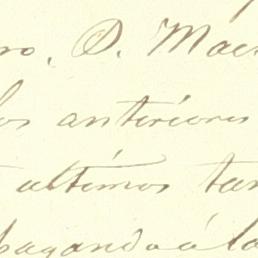 ro, D. Mac
los anteriores
últimos tan
pagando á la